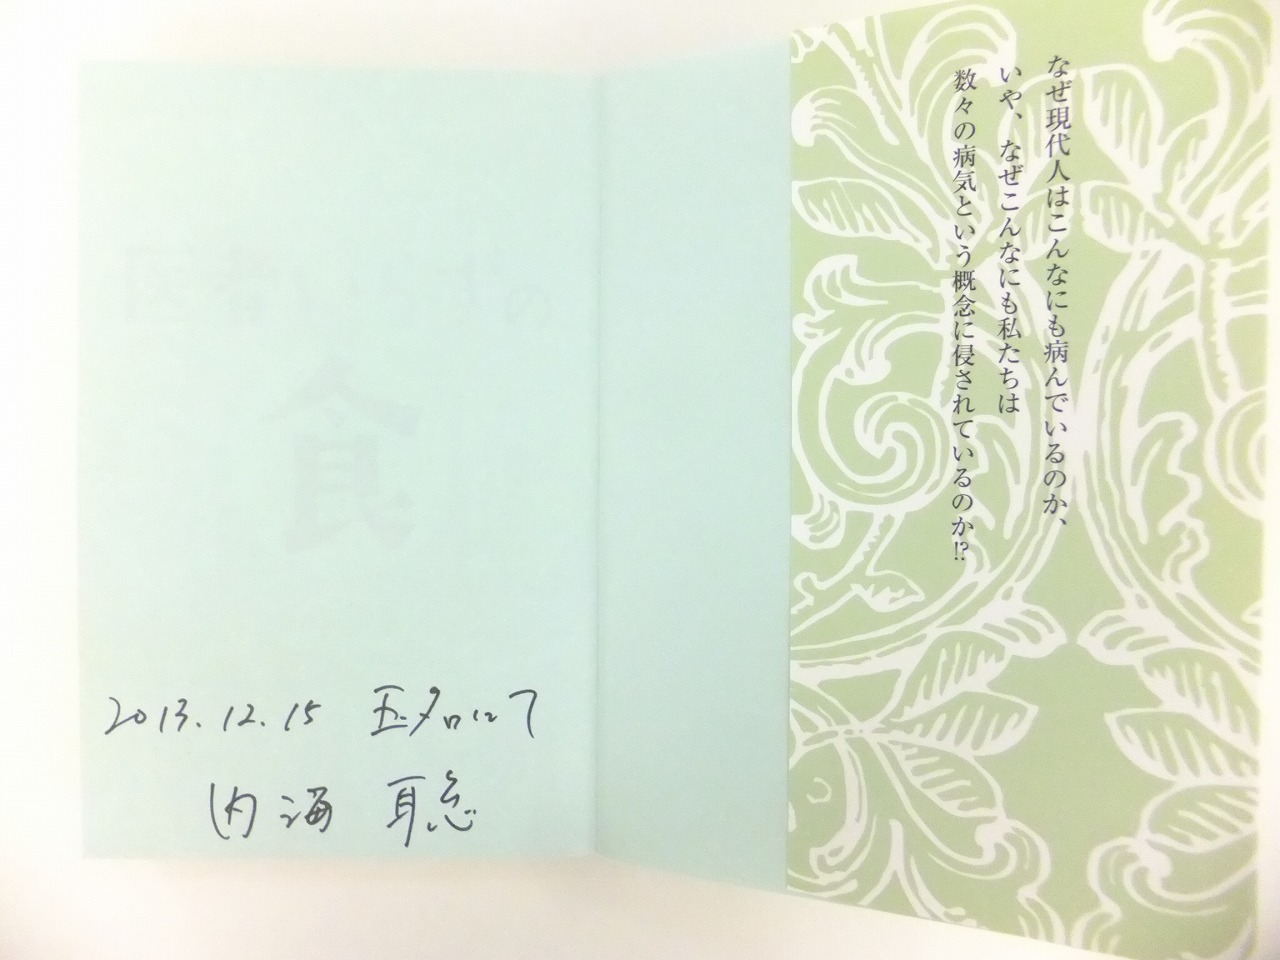 なぜ現代人はこんなにも病んでいるのか、
いや、なぜこんなにも私たちは
数々の病気という概念に侵されているのか!?
食
2013.12.15 玉名にて
内海 聡